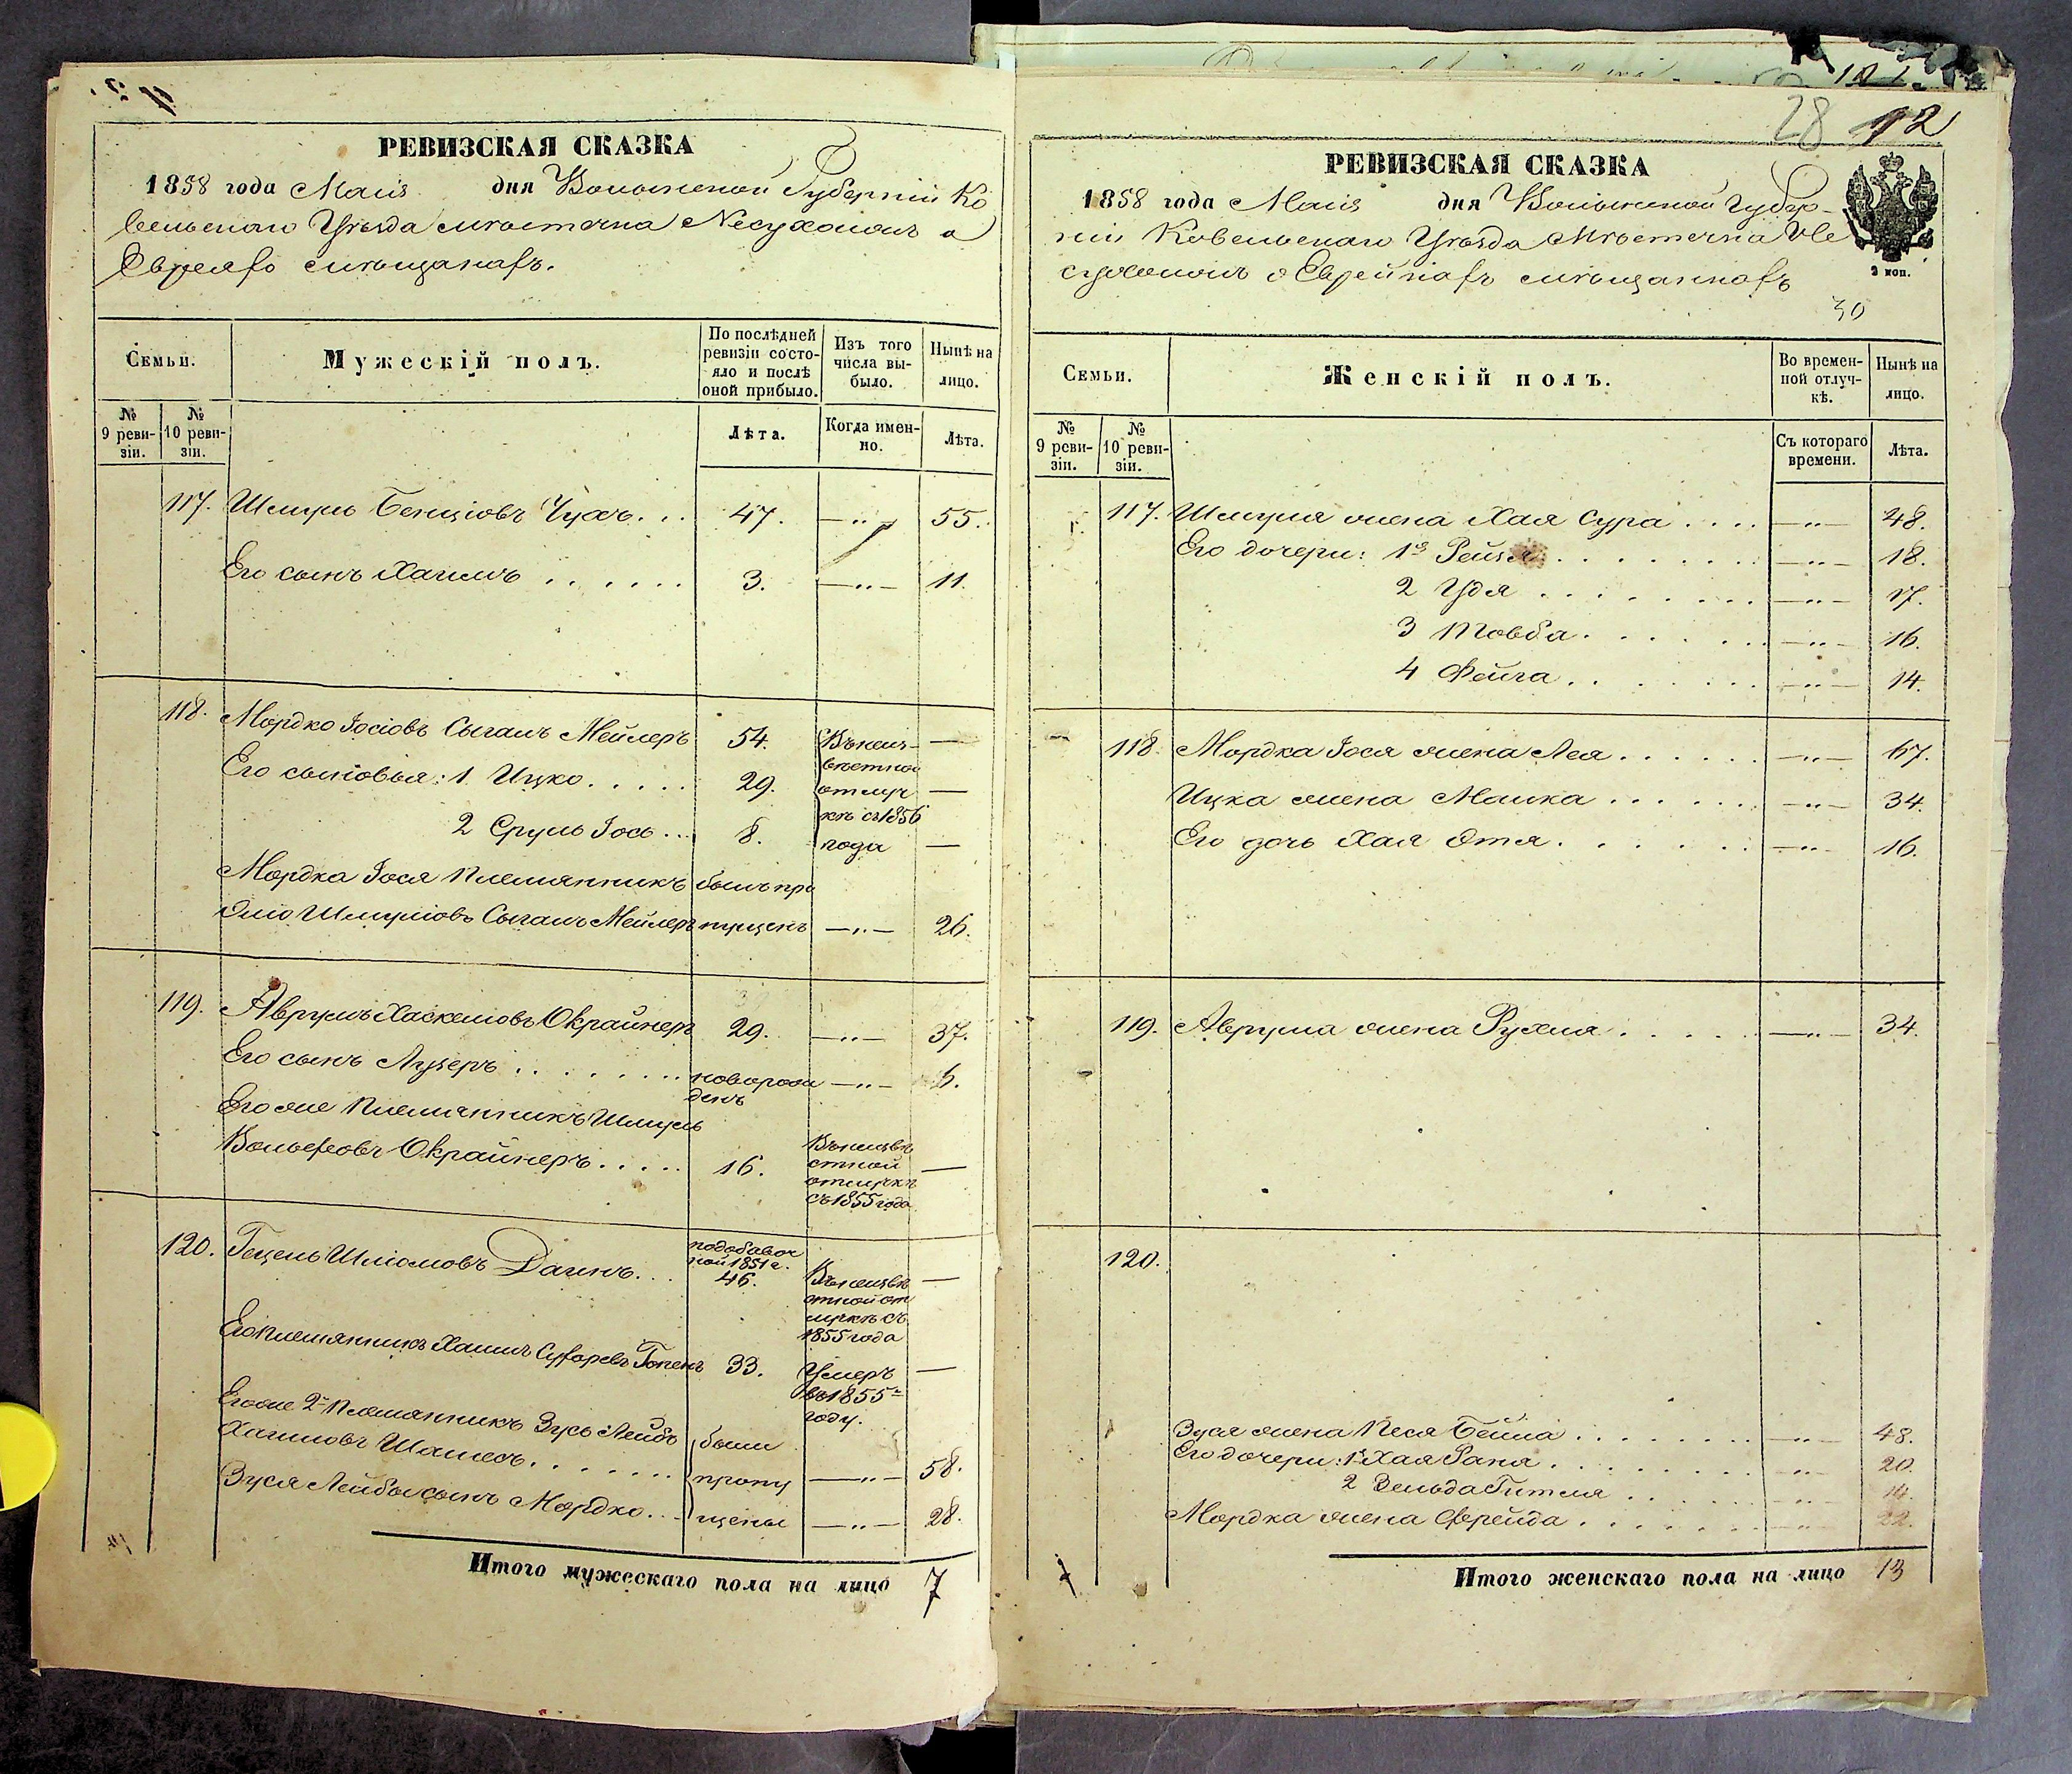 РЕВИЗСКАЯ СКАЗКА
1858 года Маія дня Волынской Губерніи Ко
вельскаго Уѣзда мѣстечка Несухоижъ о
Евреяхъ мѣщанахъ.
Семьи.
Мужескій полъ.
По послѣдней ревизіи состо-
яло и послѣ
оной прибыло.
Изъ того
числа вы-
было.
Нынѣ на
лицо.
№
9 реви-
зіи.
№
10 реви-
зіи.
Лѣта.
Когда имен-
но.
Лѣта.
117. Шмуль Бенціовъ Чухъ... 47. —„— 55.
Его сынъ Хаимъ ...... 3. —„— 11.
118. Мордко Іосіовъ Сыгалъ Мейлеръ 54. Въ неиз- —
Его сыновья: 1 Ицко..... 29. вѣстной отлуч —
2 Сруль Іось... 8. кѣ съ 1856 года —
Мордка Іося племянникъ былъ про
Эліо Шмуліовъ Сыгалъ Мейлеръ пущенъ —„— 26.
119. Аврумъ Хаскеліовъ Окрайнеръ 29. —„— 37.
Его сынъ Лузеръ ........ новорож
денъ —„— 5.
Его же племянникъ Шмуль
Вольфовъ Окрайнеръ..... 16. Въ неизвѣ
стной
отлучкѣ
съ 1855 года —
120. Гецель Шліомовъ Даинъ... по добавоч
ной 1851 г.
46. Въ неизвѣ
стной от
лучкѣ съ
1855 года —
Его племянникъ Хаимъ 33. Умеръ
въ 1855 м
году. —
Его же 2й племянникъ Зусь Лейбъ были
Хаимовъ ....... пропу —„— 58.
Зуся Лейбы сынъ Мордко... щены —„— 28.
Итого мужескаго пола на лицо 7
28 12
РЕВИЗСКАЯ СКАЗКА
1858 года Маія дня Волынской Губер-
ніи Ковельскаго Уѣзда Мѣстечка Не
сухоижъ о Еврейкахъ мѣщанкахъ
3 коп.
30
Семьи.
Женскій полъ.
Во времен-
ной отлуч-
кѣ.
Нынѣ на
лицо.
№
9 реви-
зіи.
№
10 реви-
зіи.
Съ котораго
времени.
Лѣта.
117. Шмуля жена Хая Сура .... —„— 48.
Его дочери: 1я Рейзя ........ —„— 18.
2 Удя ........ —„— 17.
3 Товба ...... —„— 16.
4 Фейга ....... —„— 14.
118. Мордка Іося жена Лея ...... —„— 67.
Ицка жена Малка ...... —„— 34.
Его дочь Хая Этя ...... —„— 16.
119. Аврума жена Рухля ..... —„— 34.
120.
Зуся жена Песя Бейла ....... —„— 48.
Его дочери: 1я Хая Раня ........ —„— 20.
2 Зельда Гитля ..... —„— 14.
Мордка жена Фрейда ....... —„— 22.
Итого женскаго пола на лицо 13